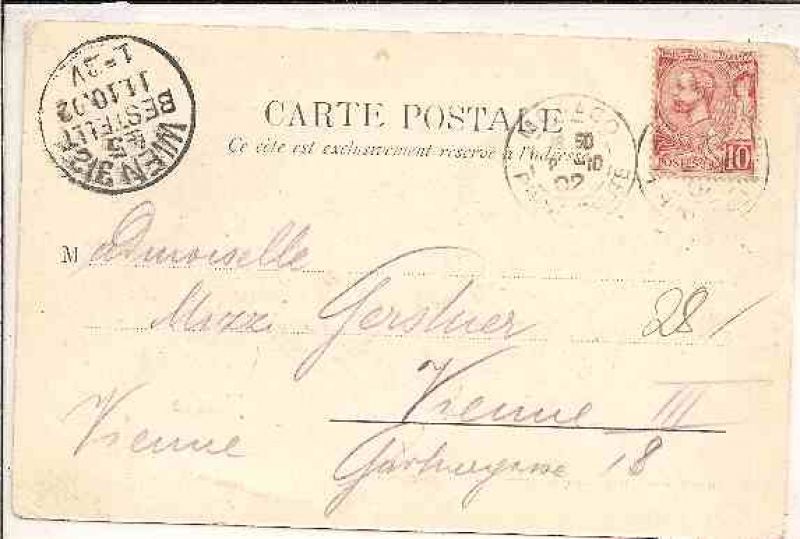 CARTE POSTALE
Ce côté est exclusivement réservé à l'adresse
WIEN 3/2
45
BESTELLT
11.10.02
1-2V
8
MONACO
02
POSTES
10
Mademoiselle
Mizzi Gerstner
28/
Vienne III
Vienne
18